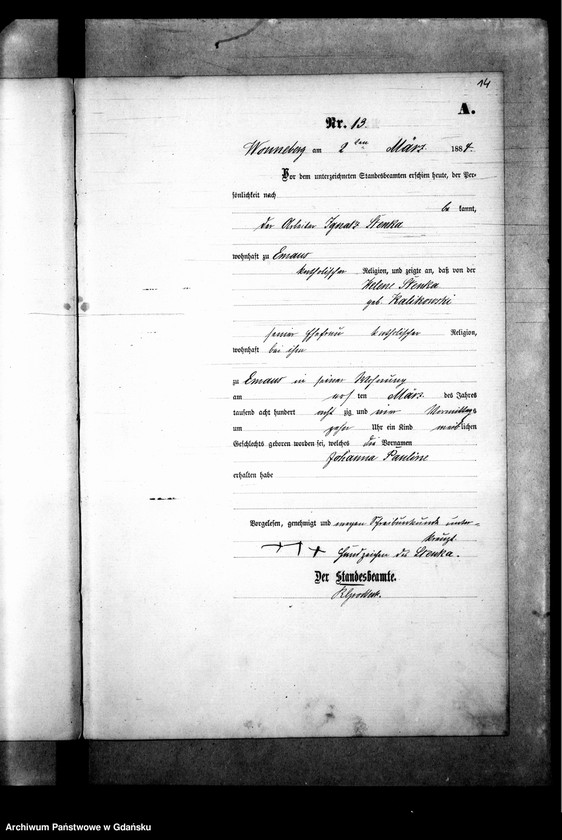 14
A.
Nr. 13.
Wonneberg am 2ten März 1884.
Vor dem unterzeichneten Standesbeamten erschien heute, der Per-
sönlichkeit nach
be kannt,
der Arbeiter Ignatz Stenka
wohnhaft zu Emaus
katholischer Religion, und zeigte an, daß von der
Helene Stenka
geb. Kalikowski
seiner Ehefrau katholischer Religion,
wohnhaft bei ihm
zu Emaus in seiner Wohnung
am ten März des Jahres
tausend acht hundert acht zig und vier Vormittags
um zehn Uhr ein Kind weiblichen
Geschlechts geboren worden sei, welches die Vornamen
Johanna Pauline
erhalten habe
Vorgelesen, genehmigt und wegen Schreibunkunde unter-
kreuzt.
+++ Handzeichen des Stenka.
Der Standesbeamte.
Archiwum Państwowe w Gdańsku